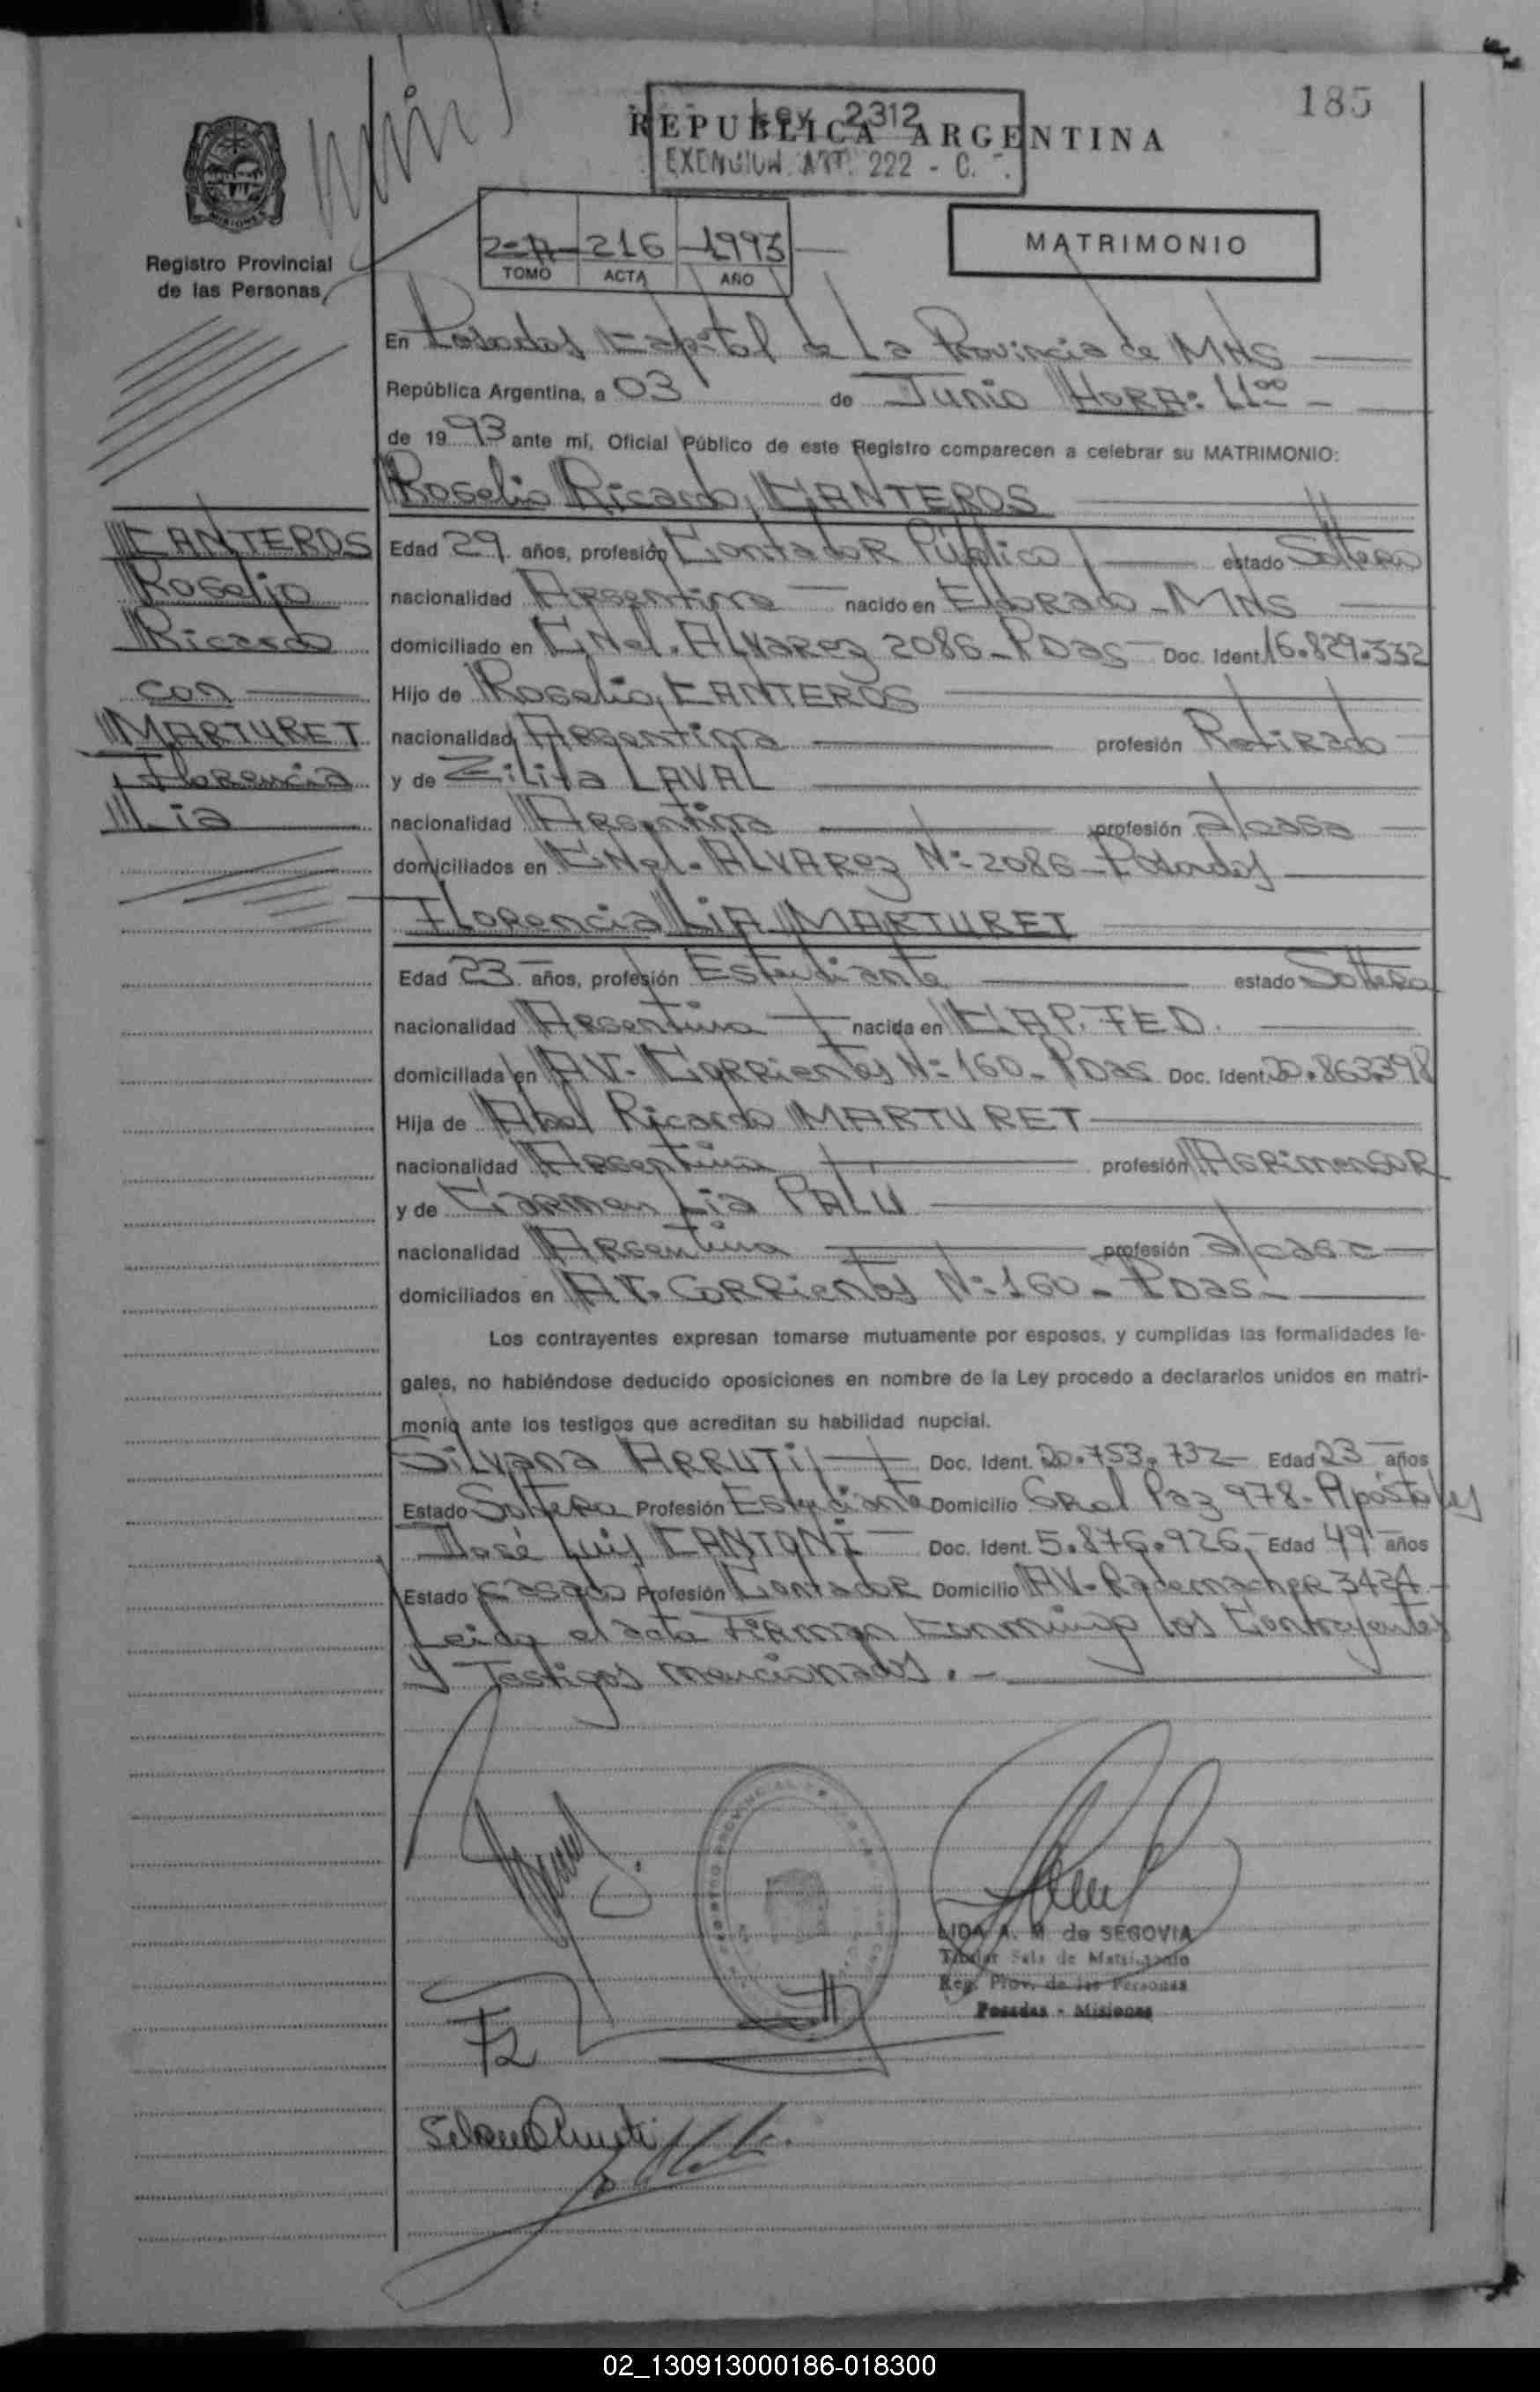 185
Ley 2312
REPUBLICA ARGENTINA
EXENSION ART. 222 - C.
2-A 216 1993
TOMO ACTA AÑO
MATRIMONIO
MISIONES
Registro Provincial
de las Personas
En Posadas Capital de La Provincia de MNS
República Argentina, a 03 de Junio HORA: 11:00 -
de 1993 ante mí, Oficial Público de este Registro comparecen a celebrar su MATRIMONIO:
Roselio Ricardo CANTEROS
CANTEROS
Roselio
Ricardo
con
MARTURET
Florencia
Lia
Edad 29 años, profesión Contador Público estado Soltero
nacionalidad Argentina nacido en Eldorado - MNS
domiciliado en Cnel. ALVAREZ 2086 - Pdas Doc. Ident. 16.829.332
Hijo de Roselio CANTEROS
nacionalidad Argentina profesión Retirado
y de Zilita LAVAL
nacionalidad Argentina profesión a/casa
domiciliados en Cnel. ALVAREZ Nº 2086 - Posadas
Florencia LIA MARTURET
Edad 23 años, profesión Estudiante estado Soltera
nacionalidad Argentina nacida en CAP. FED.
domiciliada en AV. Corrientes Nº 160 - Pdas Doc. Ident. 20.863.398
Hija de Abel Ricardo MARTURET
nacionalidad Argentina profesión Agrimensor
y de Carmen Lia PALU
nacionalidad Argentina profesión a/casa
domiciliados en AV. Corrientes Nº 160 - Pdas -
Los contrayentes expresan tomarse mutuamente por esposos, y cumplidas las formalidades le-
gales, no habiéndose deducido oposiciones en nombre de la Ley procedo a declararlos unidos en matri-
monio ante los testigos que acreditan su habilidad nupcial.
Silvana ARRUTI Doc. Ident. 20.753.732 Edad 23 años
Estado Soltera Profesión Estudiante Domicilio Gral Paz 978 - Apóstoles
José Luis CANTONI Doc. Ident. 5.876.926 Edad 49 años
Estado casado Profesión Contador Domicilio AV. Rademacher 3424
Leida el acta Firman Conmigo los Contrayentes
y Testigos mencionados. -
LIDA A. M. de SEGOVIA
Titular Sala de Matrimonio
Reg. Prov. de las Personas
Posadas - Misiones
02_130913000186-018300